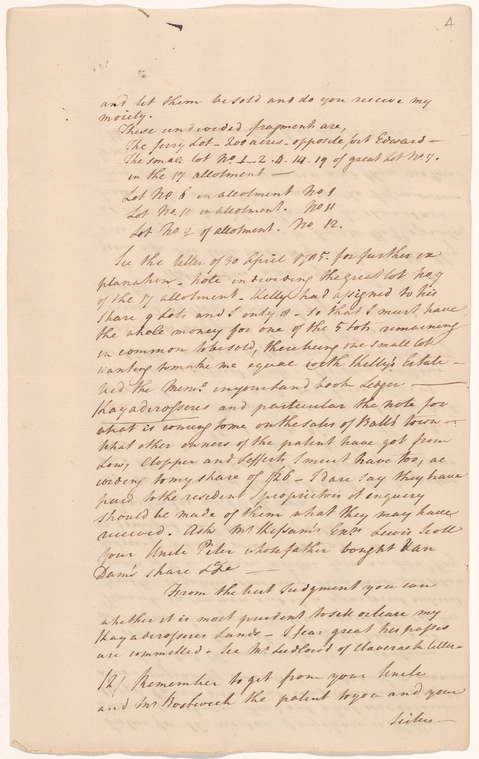 4
and let them be sold and do you receive my
moiety.
These undivided fragments are,
The ferry Lot - 200 acres - opposite fort Edward -
The small lot No 1 - 2. 4. 14. 19 of great Lot No 7.
in the 17 allotment -
Lot No. 6 in allotment No 8
Lot No. 10 in allotment. No 11
Lot No 2 of allotment. No. 12.
See the letter of 30 April 1785. for further ex
planation - Note in dividing the great lot No 7
of the 17 allotment. Kelly had assigned to his
share 9 Lots and I only 8 - so that I must have
the whole money for one of the 5 lots remaining
in common to be sold, there being one small lot
wanting to make me equal with Kelly's Estate -
the Memo. in your land book Ledger -
Kayaderosseres and particular the note for
what is coming to me on the sales of Balls town -
What other owners of the patent have got from
Low, Clopper and Lefferts I must have too, ac
cording to my share of 1/26 - I dare say they have
paid to the resident proprietors & enquiry
should be made of them what they may have
received. Ask Mr Lewis Scott
your Uncle Peter whose father bought Van
Dam's share &c -
From the best Judgment you can
whether it is most prudent to sell or lease my
Kayaderosseres Lands - I fear great trespasses
are committed - See Mr Ludlow's of Claverack letter -
12/ Remember to get from your Uncle
and Mr Bostwick the patent to you and your
Sister -